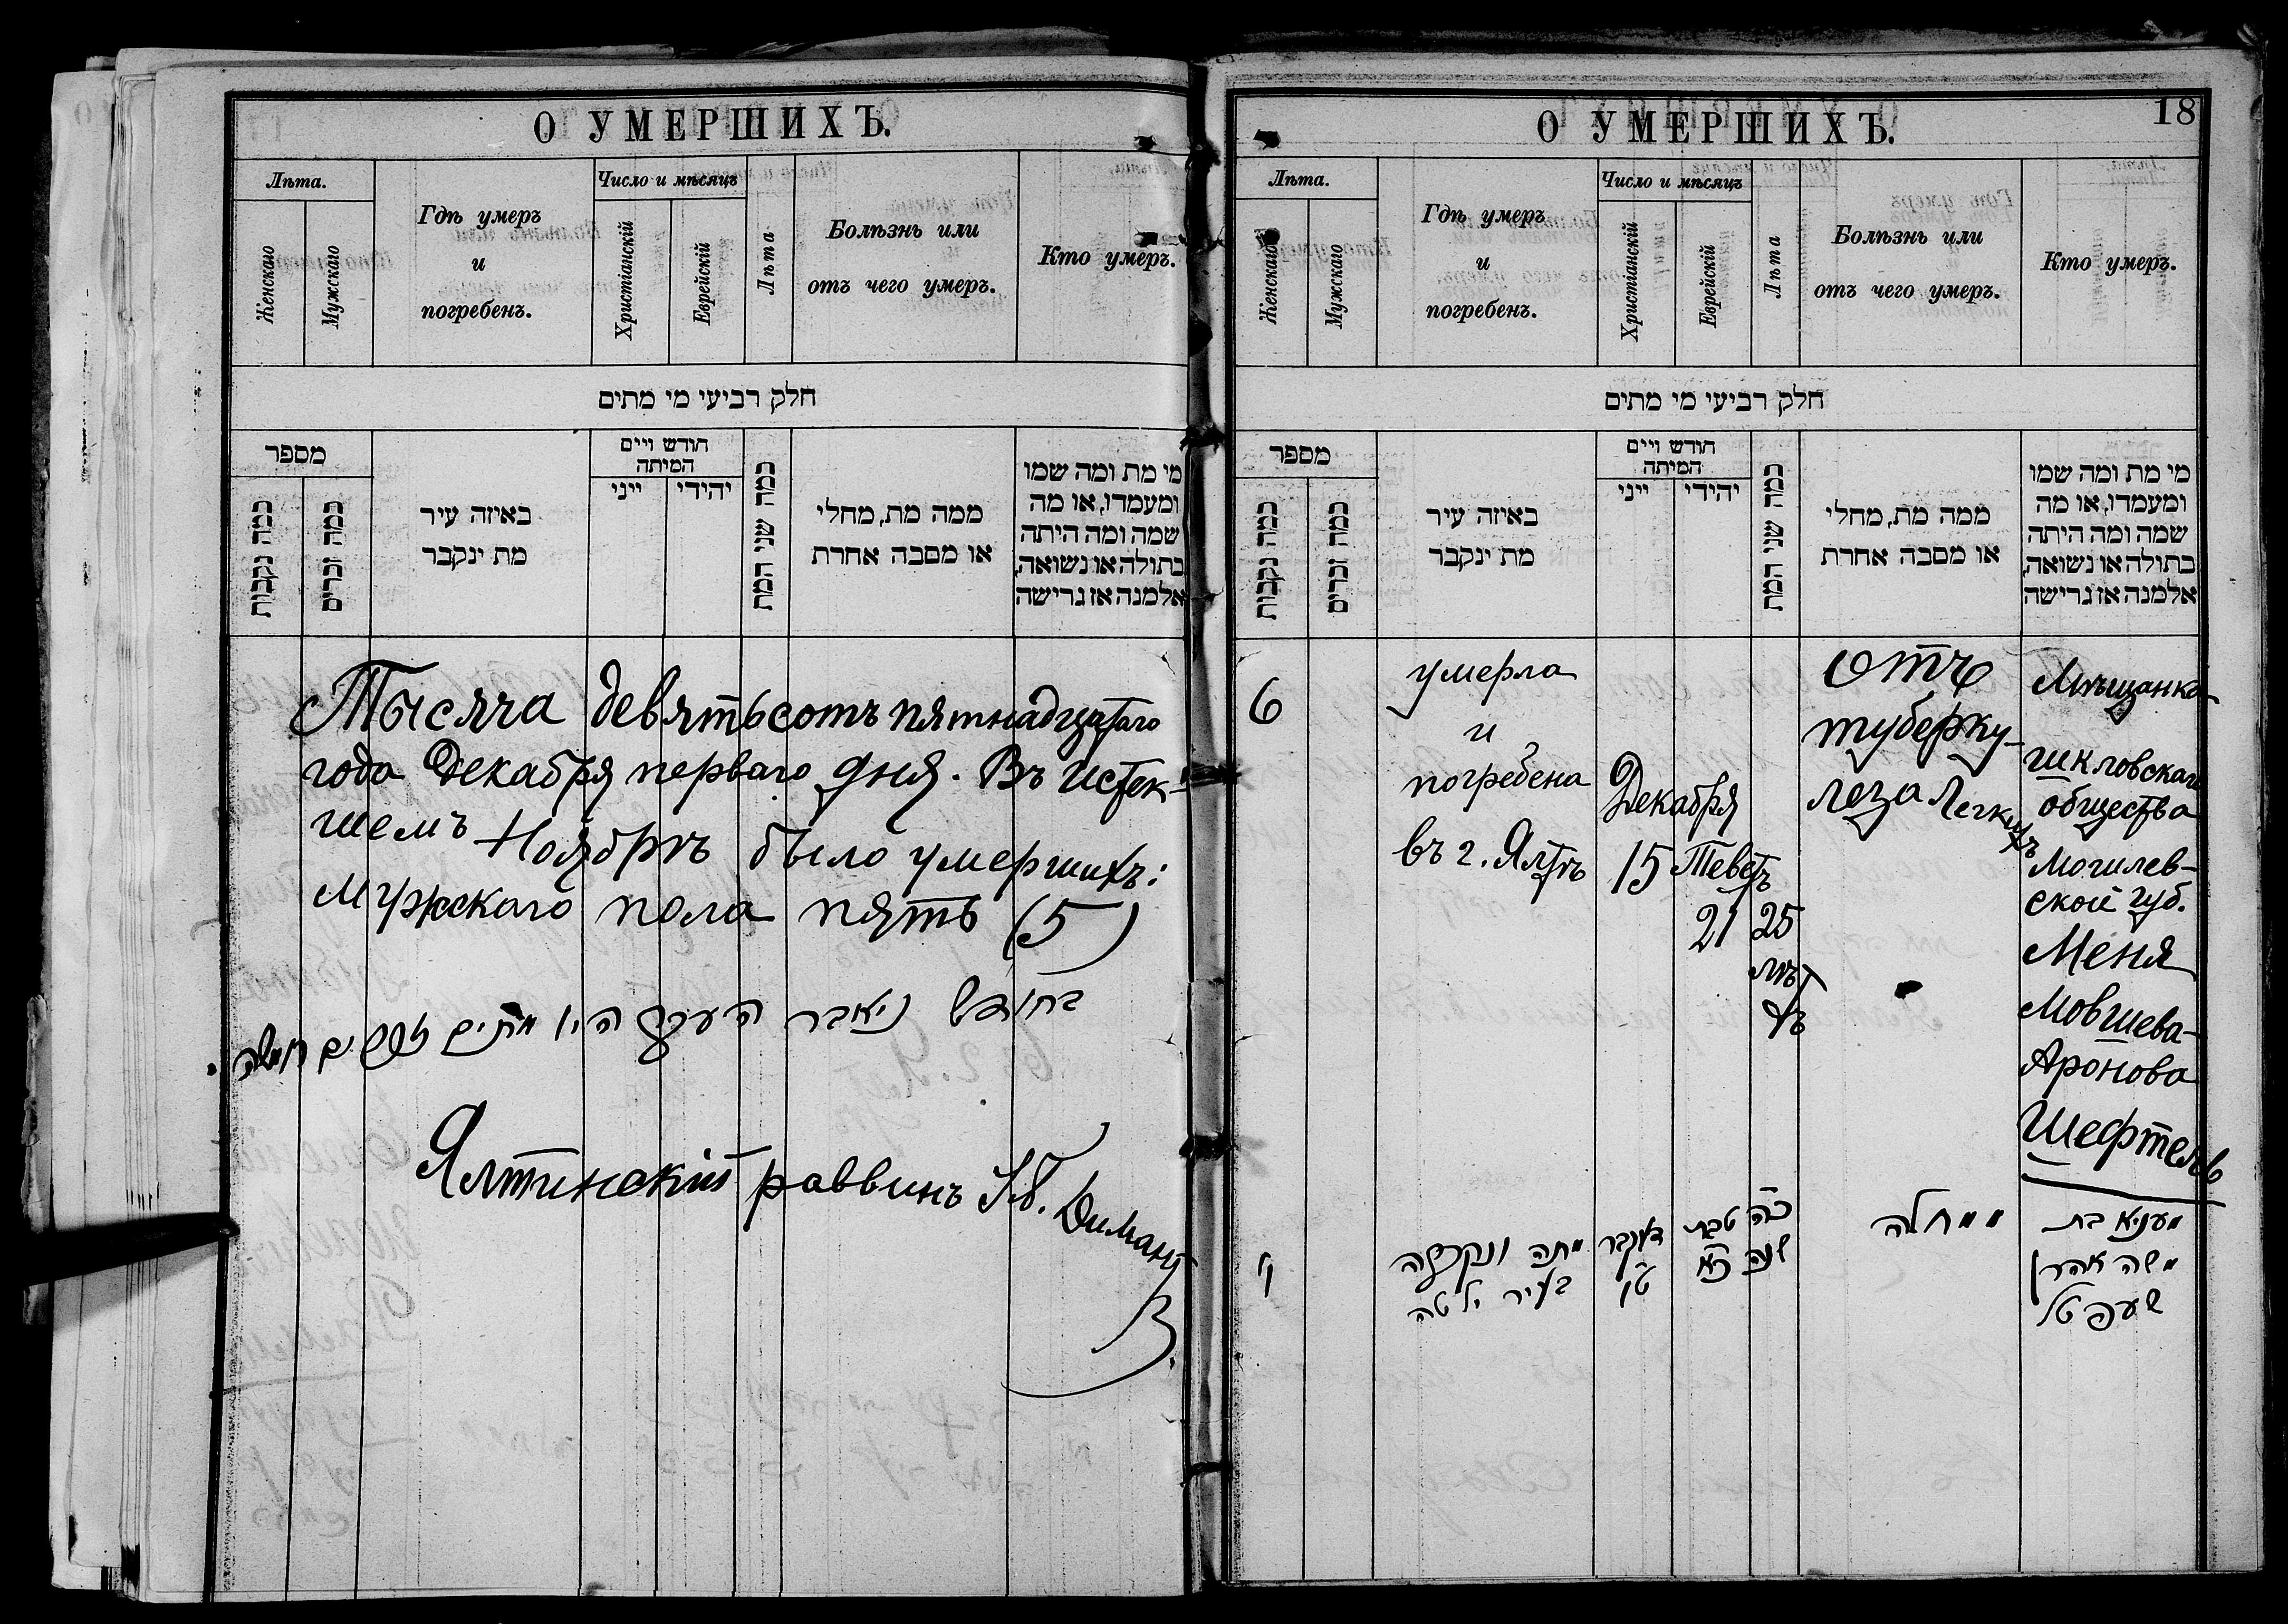 О УМЕРШИХЪ.
Лѣта.
Женскаго
Мужскаго
Гдѣ умеръ
и
погребенъ.
Число и мѣсяцъ
Христіанскій
Еврейскій
Лѣта
Болѣзнь или
отъ чего умеръ.
Кто умеръ.
חלק רביעי מי מתים
מספר
כמה נקבות
כמה זכרים
באיזה עיר
מת ינקבר
חודש ויים
המיתה
ייני
יהידי
כמה שני המת
ממה מת, מחלי
או מסבה אחרת
מי מת ומה שמו
ומעמדו, או מה
שמה ומה היתה
בתולה או נשואה,
אלמנה אז גרישה
Тысяча девятьсотъ пятнадцатаго
года Декабря перваго дня. Въ истек-
шемъ Ноябрѣ было умершихъ:
Мужскаго пола пять (5)
בחודש ניאבר העבר היו מתים זכרים חמשה
Ялтинскій раввинъ Диманъ
О УМЕРШИХЪ.
18
Лѣта.
Женскаго
Мужскаго
Гдѣ умеръ
и
погребенъ.
Число и мѣсяцъ
Христіанскій
Еврейскій
Лѣта
Болѣзнь или
отъ чего умеръ.
Кто умеръ.
חלק רביעי מי מתים
מספר
כמה נקבות
כמה זכרים
באיזה עיר
מת ינקבר
חודש ויים
המיתה
ייני
יהידי
כמה שני המת
ממה מת, מחלי
או מסבה אחרת
מי מת ומה שמו
ומעמדו, או מה
שמה ומה היתה
בתולה או נשואה,
אלמנה אז גרישה
6
умерла
и
погребена
въ г. Ялтѣ
Декабря
15
Теветъ
21
25
лѣт
отъ
туберку-
леза легкихъ
Мѣщанка
Шкловскаго
общества
Могилев-
ской губ.
Меня
Мовшева-
Аронова
Шефтель
ו
מתה ונקברה
בעיר ילטה
דעקבר
טו
טבת
כא
כה
שנה
ממחלה
מעניא בת
משה אהרן
שעפטל